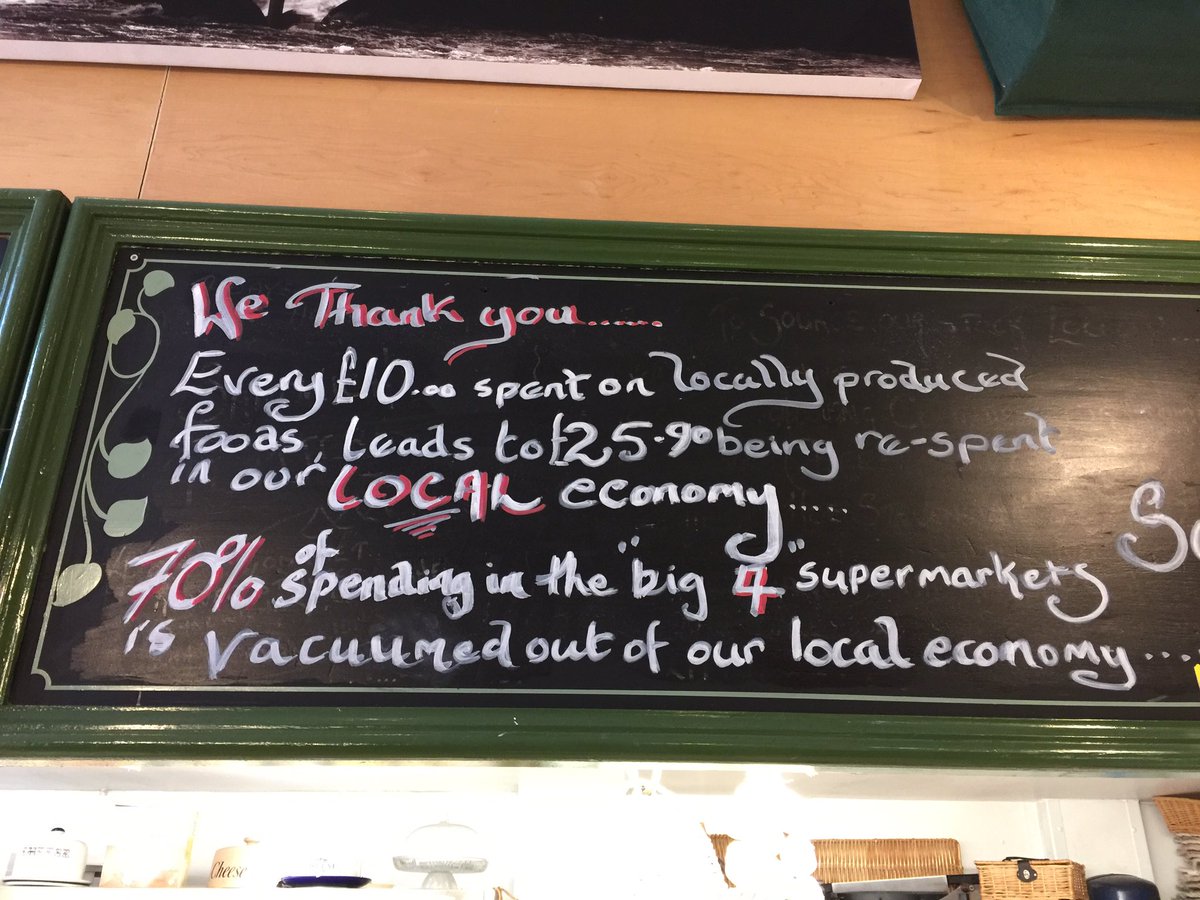 We Thank you......
Every £10.00 spent on locally produced
foods, leads to £25.90 being re-spent
in our LOCAL economy.....
70% of spending in the "big 4" supermarkets
is vacuumed out of our local economy....
So
Cheese